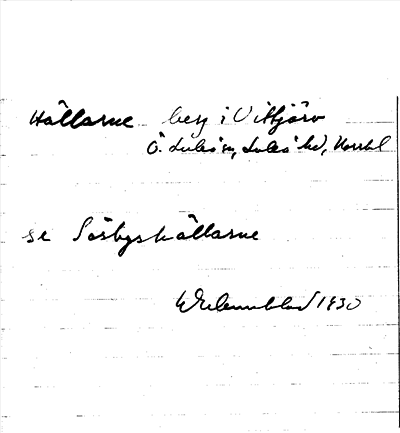 Hällarne berg i Vittjärv
Ö. Luleå sn, Luleå hd, Norrbl
se Sörbyshällarne
1930